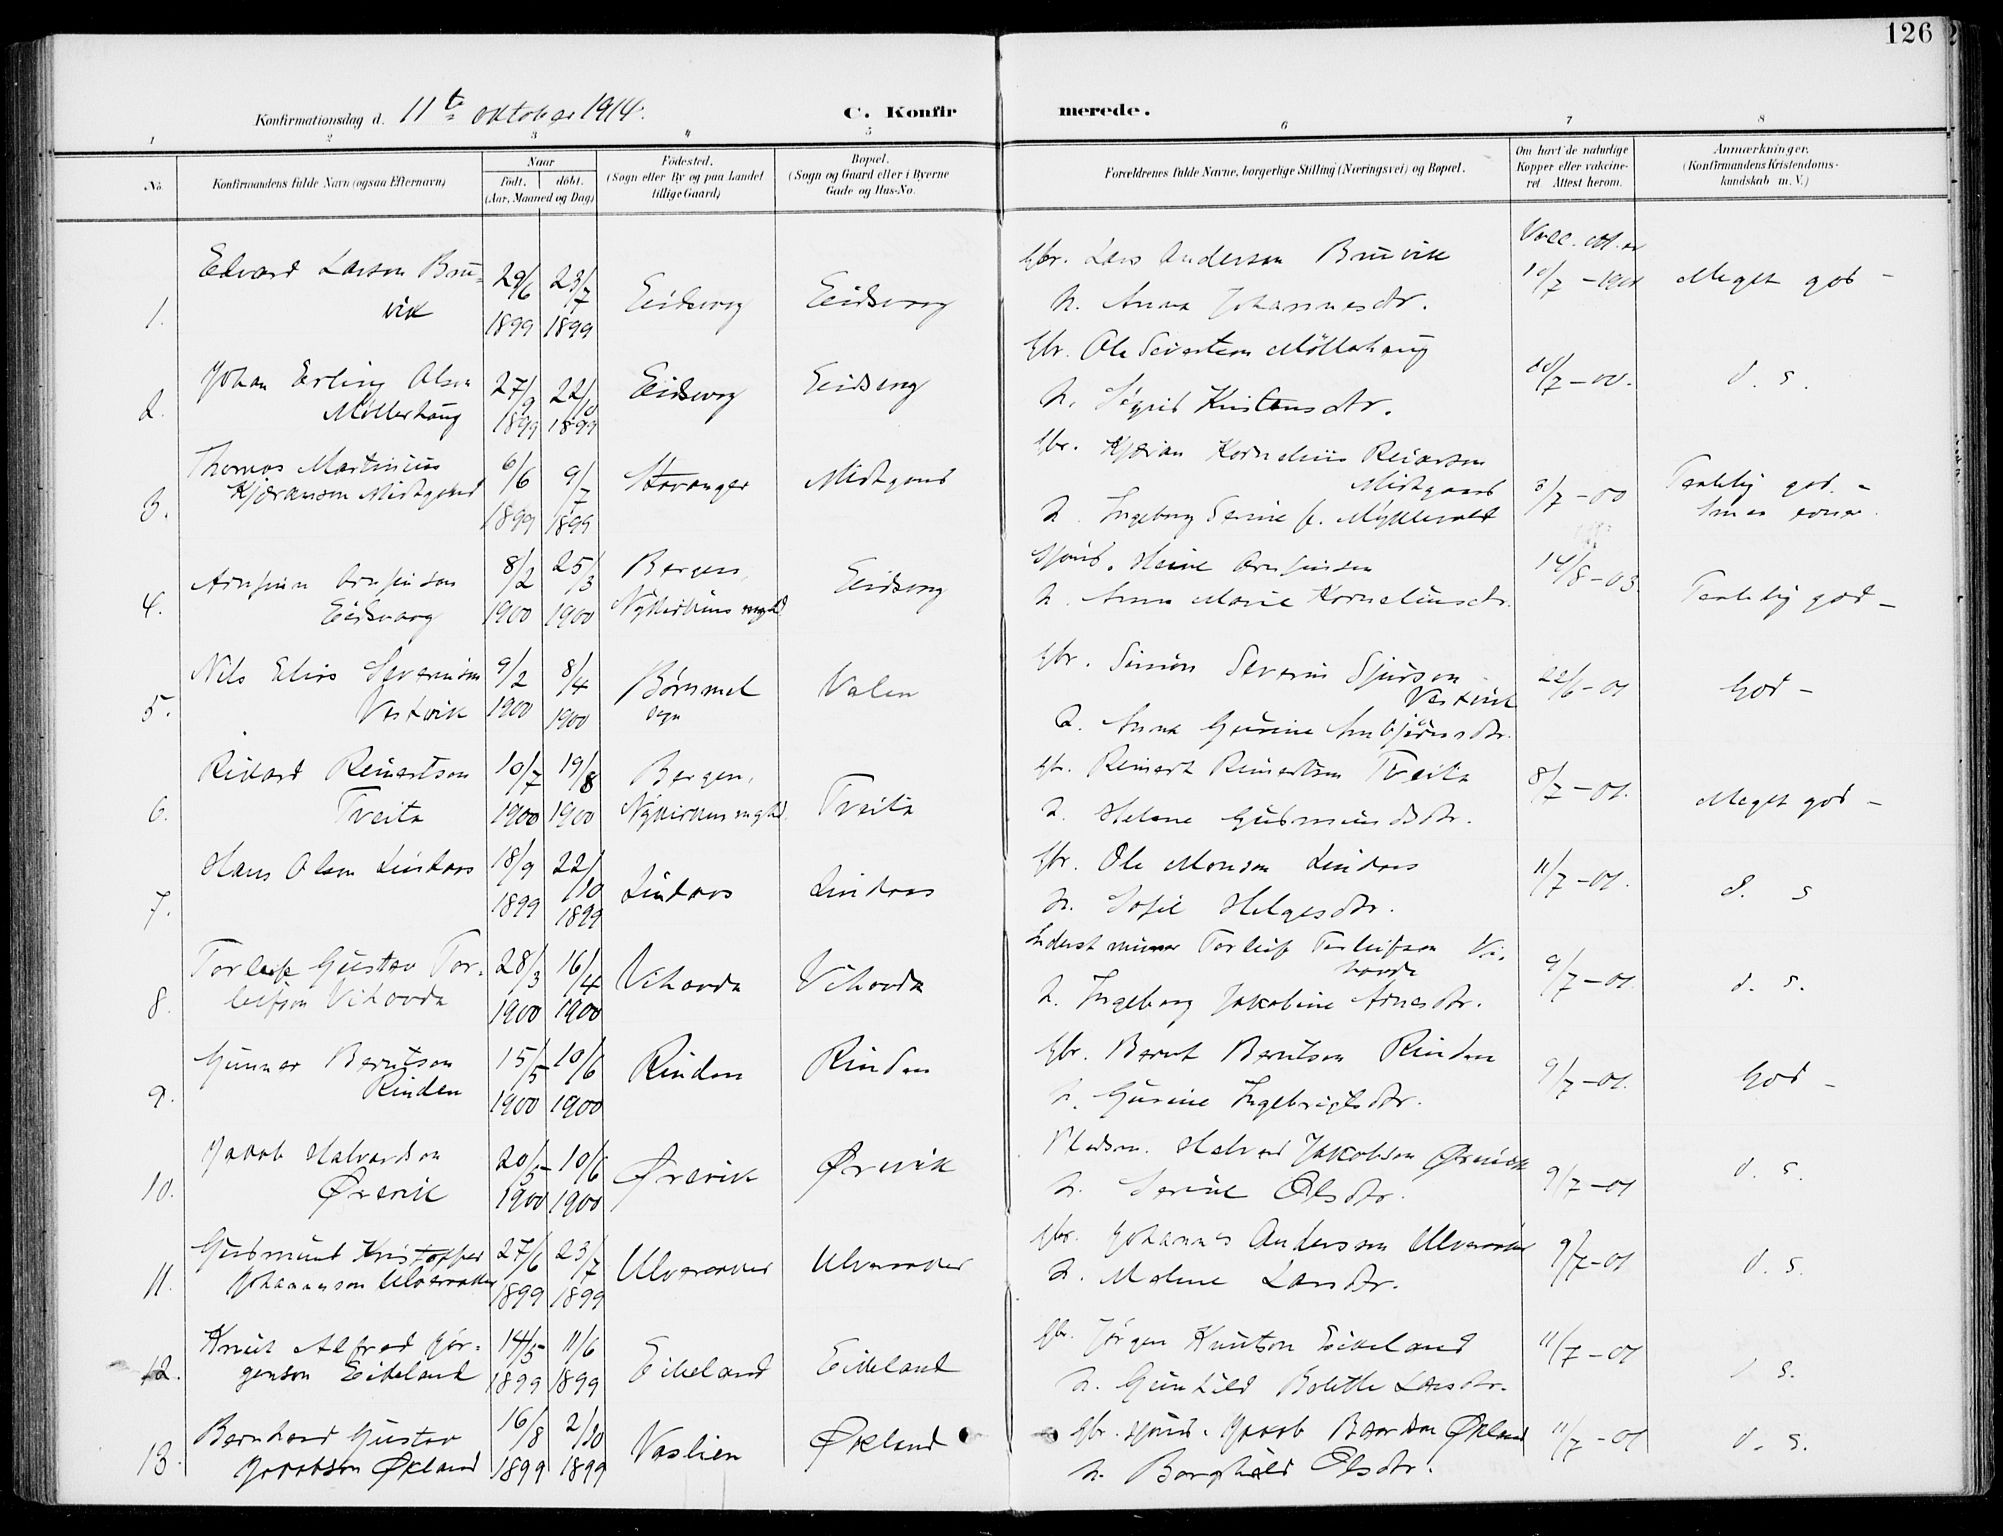 126
Konfirmationsdag d. 11te oktober 1914.
C. Konfirmerede.
1 2 3 4 5 6 7 8
No. Konfirmandens fulde Navn (ogsaa Efternavn) Naar Födt. döbt. (Aar, Maaned og Dag) Födested. (Sogn eller By og paa Landet tillige Gaard) Bopæl. (Sogn og Gaard eller i Byerne Gade og Hus-No. Forældrenes fulde Navne, borgerlige Stilling (Næringsvei) og Bopæl. Om havt de naturlige Kopper eller vakcineret Attest herom. Anmærkninger. (Konfirmandens Kristendomskundskab m. V.)
1. Edvard Larson Bruvik 29/6 1899 23/7 1899 Eidsvog Eidsvog
Gbr. Lars Anderson Bruvik
h. Anna Johannesdtr.
Vacc. att. av 10/7 - Meget god -
2. Johan Erling Olsen Møllerhaug 27/9 1899 22/10 1899 Eidsvog Eidsvog
Gbr. Ole Sivertsen Møllerhaug
h. Sigrid Kristensdtr.
10/7 - 00. d. s.
3. Thomas Martinius Kjæranson Midtgaard 6/6 1899 9/7 1899 Stavanger Midtgaard
Gbr. Kjæran Kornelius Reiarson Midtgaard
h. Ingeborg Serine f. Myklevold
3/7 - 00 Temlelig god. - Smaa evner.
4. Arnfinn Arnfinson Eidsvaag 8/2 1900 25/3 1900 Bergen, Nykirkens mghd Eidsvog
h. Anna Marie Korneliusdtr.
14/8 - 03. Temlelig god -
5. Nils Elias Severinson Vestvik 9/2 1900 8/4 1900 Børmmel sogn Valen
Gbr. Simon Severin Sjurson Vestvik
h. Anna Gurine Arnbjørnsdtr.
22/6 - 01 God -
6. Rikard Reinertson Tveita 10/7 1900 19/8 1900 Bergen, Nykirkens mghd. Tveita
Gbr. Reinert Reinertson Tveita
h. Helene Gudmundsdtr.
8/7 - 01. Meget god -
7. Hans Olson Lindaas 18/9 1899 22/10 1899 Lindaas Lindaas
Gbr. Ole Monson Lindaas
h. Sofie Helgesdtr.
11/7 - 01. d. s
8. Torleif Gustav Torleifson Vihovda 28/3 1900 16/4 1900 Vihovda Vihovda
Torleif Torleifson Vihovda
h. Ingeborg Jakobine Arnesdtr.
9/7 - 01. d. s.
9. Gunnar Berntson Rinden 15/5 1900 10/6 1900 Rinden Rinden
Gbr. Bernt Berntson Rinden
h. Gurine Ingebrigtsdtr.
9/7 - 01. God -
10. Jakob Halvardson Ørevik 20/5 1900 10/6 1900 Ørevik Ørevik
Pladsm. Halvard Jakobson Ørevik
h. Serine Olsdtr.
9/7 - 01 d. s.
11. Gudmund Kristoffer Johannesson Ulveraaker 27/6 1899 23/7 1899 Ulveraaker Ulveraaker
Gbr. Johannes Anderson Ulveraaker
h. Malene Larsdtr.
9/7 - 01 d. s.
12. Knut Alfred Jørgenson Eikeland 14/5 1899 11/6 1899 Eikeland Eikeland
Gbr. Jørgen Knutson Eikeland
h. Gunhild Bolette Larsdtr.
11/7 - 01 d s.
13. Bernhard Gustav Jakobson Økland 16/8 1899 2/10 1899 Vaslien Økland
Gbr. sjømd. Jakob Baardson Økland
h. Borghild Olsdtr.
11/7 - 01 d. s.